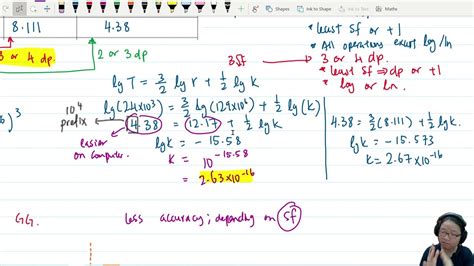 Shapes
Ink to Shape
Ink to Text
Ink to Math
8.111
4.38
3 or 4 dp
2 or 3 dp
* least sf or +1
* All operations except log/ln
3sf
3 or 4 dp
* least sf ⇒ dp or +1
log or ln.
lg T = 3/2 lg r + 1/2 lg k
lg(24×10³) = 3/2 lg(129×10⁶) + 1/2 lg(k)
10⁴
prefix
)³
4.38 = 12.17 + 1/2 lg k
easier
on computer.
lgk = -15.58
k = 10^-15.58
= 2.63×10^-16
4.38 = 3/2(8.111) + 1/2 lgk.
lgk = -15.573
k = 2.67×10^-16
GG.
less accuracy; depending on sf